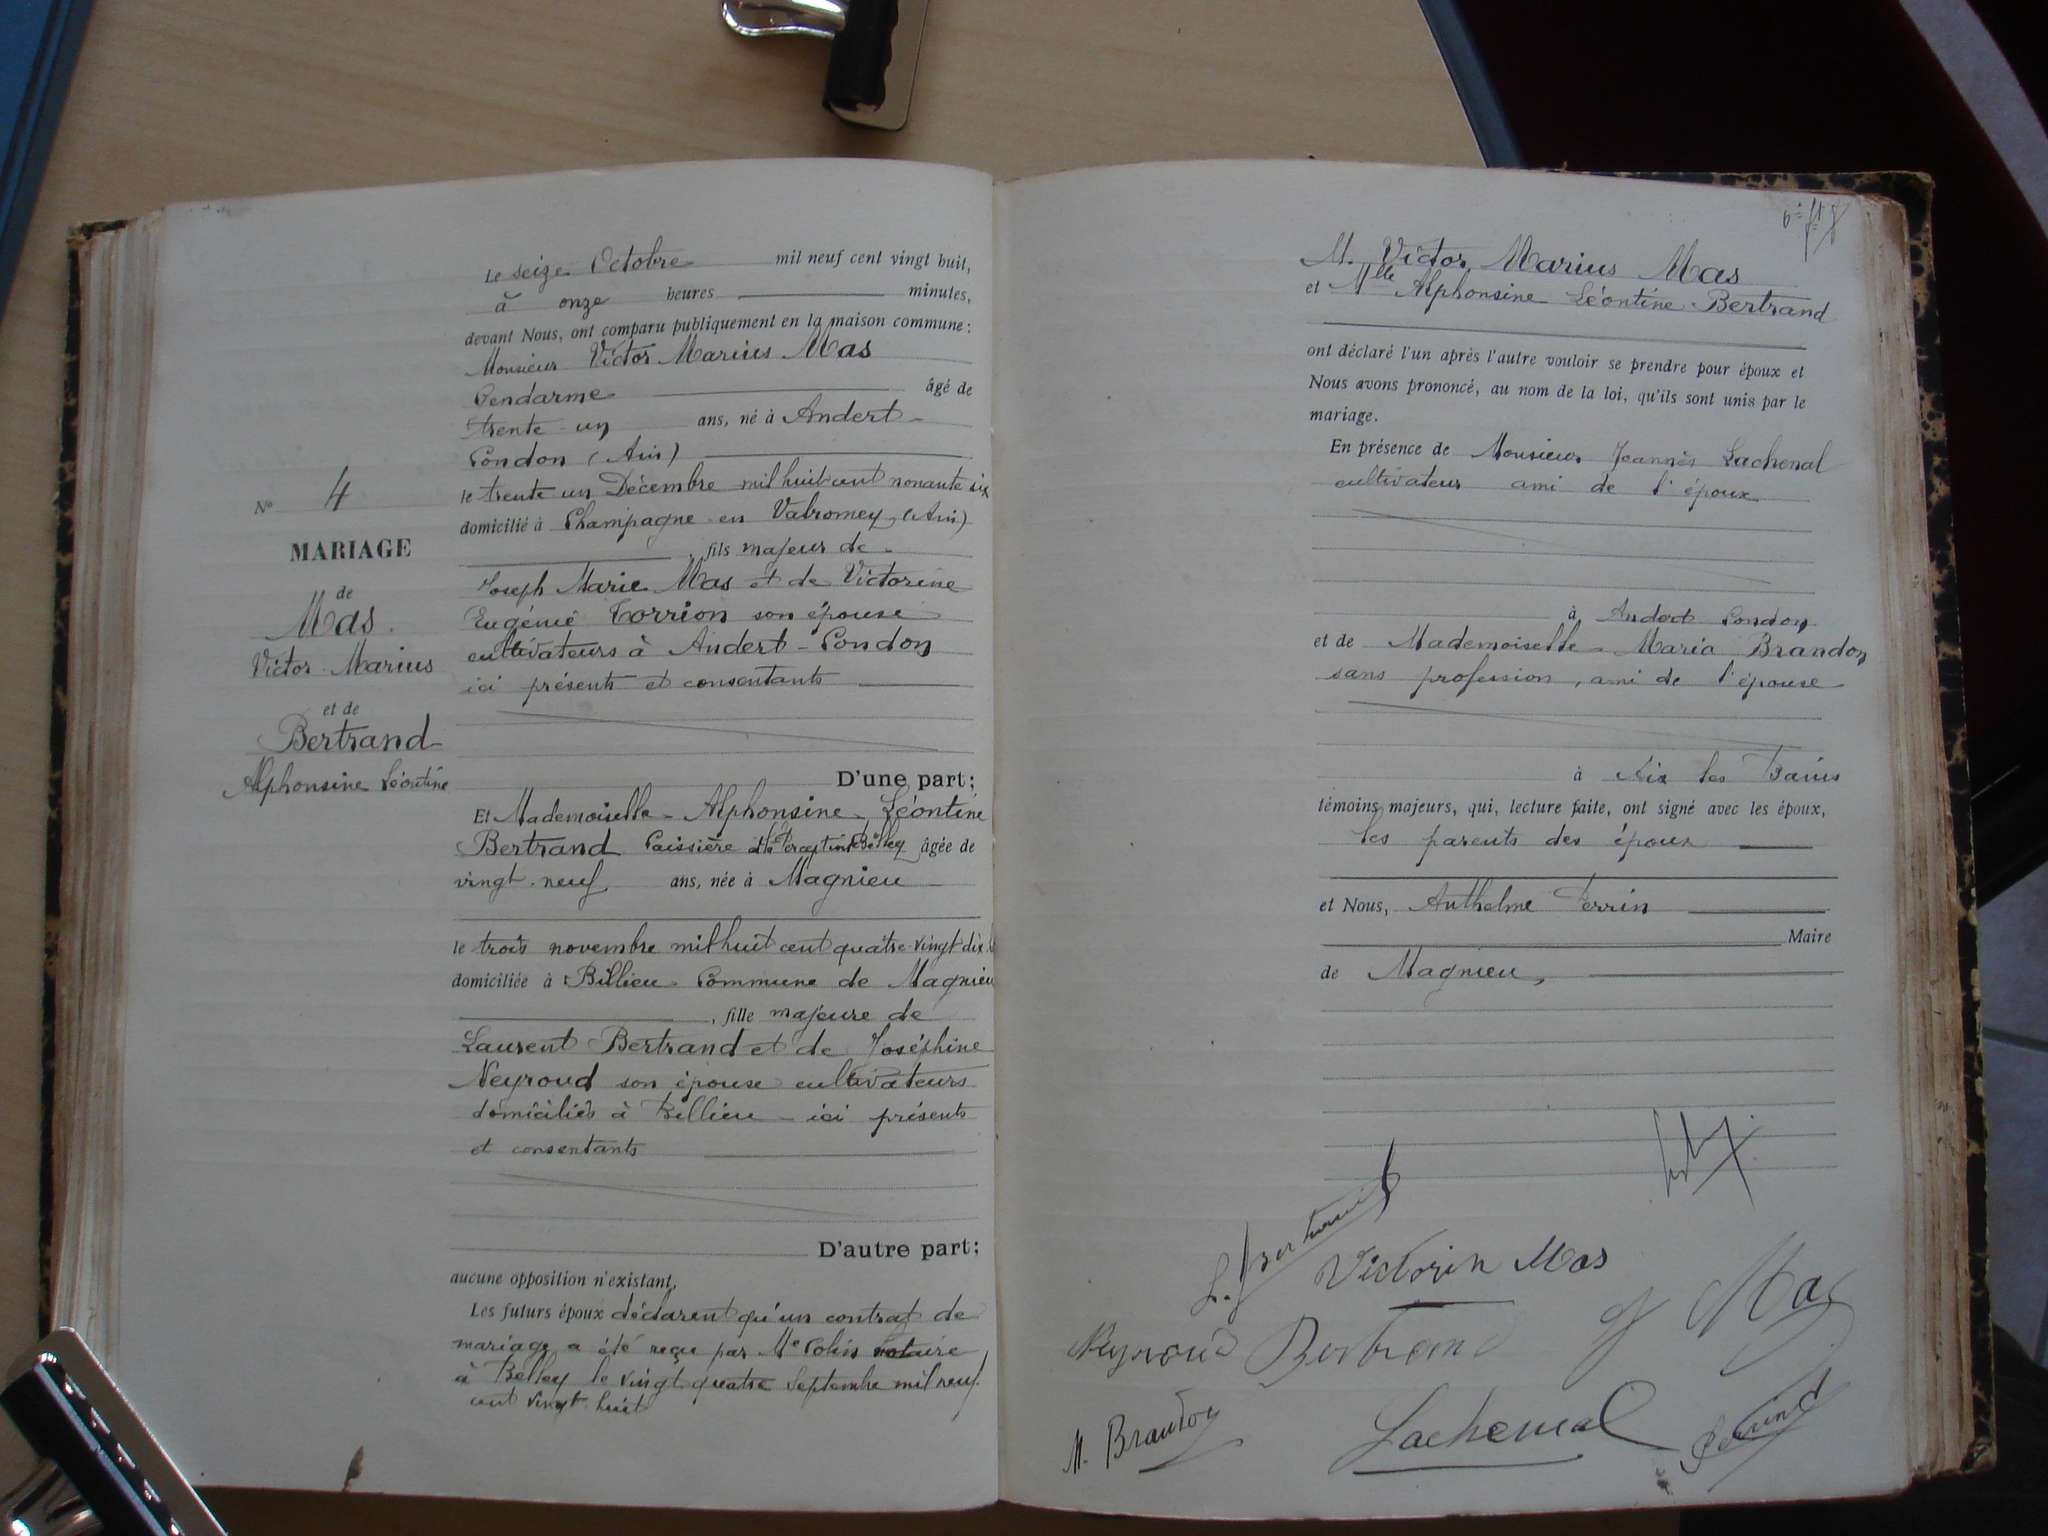 Le seize Octobre mil neuf cent vingt huit,
à onze heures minutes,
devant Nous, ont comparu publiquement en la maison commune :
Monsieur Victor Marius Mas
Gendarme âgé de
trente un ans, né à Andert
Condon (Ain)
le trente un Décembre mil huit cent nonante six
domicilié à Champagne en Valromey (Ain)
, fils majeur de
Joseph Marie Mas et de Victorine
Eugénie Torrion son épouse
cultivateurs à Andert - Condon
ici présents et consentants
D'une part ;
Nº 4
MARIAGE
de
Mas
Victor Marius
et de
Bertrand
Alphonsine Léontine
Et Mademoiselle Alphonsine Léontine
Bertrand Caissière à la Perception Belley âgée de
vingt neuf ans, née à Magnieu
le trois novembre mil huit cent quatre vingt dix
domiciliée à Billieu Commune de Magnieu
, fille majeure de
Laurent Bertrand et de Joséphine
Neyroud son épouse cultivateurs
domiciliés à Billieu - ici présents
et consentants
D'autre part ;
aucune opposition n'existant,
Les futurs époux déclarent qu'un contrat de
mariage a été reçu par Me Colin notaire
à Belley le vingt quatre Septembre mil neuf
cent vingt huit
M. Victor Marius Mas
et Mlle Alphonsine Léontine Bertrand
ont déclaré l'un après l'autre vouloir se prendre pour époux et
Nous avons prononcé, au nom de la loi, qu'ils sont unis par le
mariage.
En présence de Monsieur Joannès Lachenal
cultivateur ami de l'époux
à Andert Condon
et de Mademoiselle Maria Brandon
sans profession, ami de l'épouse
à Aix les Bains
témoins majeurs, qui, lecture faite, ont signé avec les époux,
les parents des époux
et Nous, Anthelme Perrin
Maire
de Magnieu,
L. Bertrand
Victorin Mas
Mas
Neyroud Bertrand
M. Brandon
Lachenal